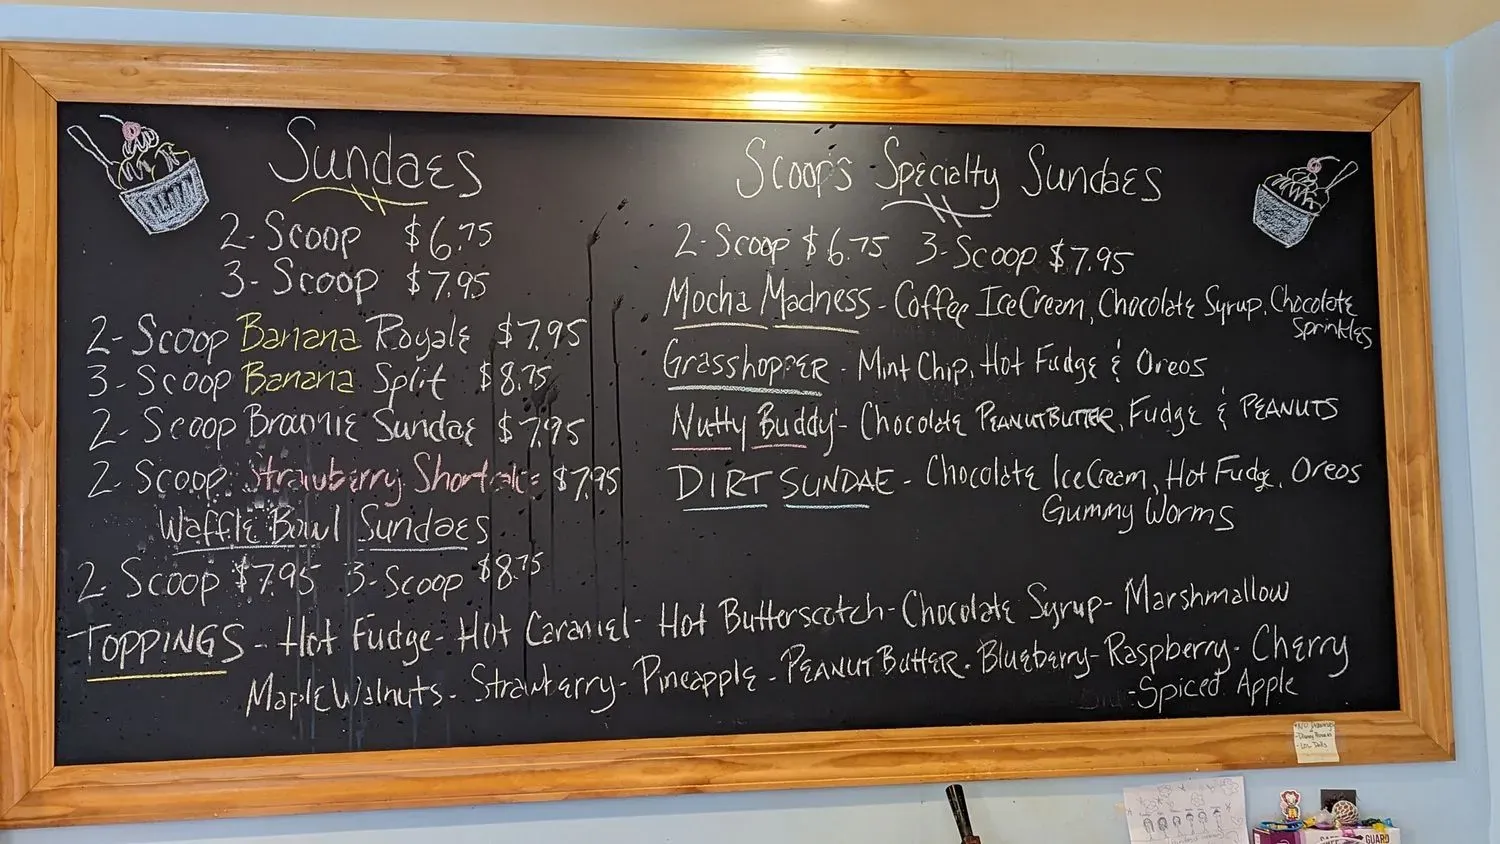 Sundaes
2-Scoop $6.75
3-Scoop $7.95
2-Scoop Banana Royale $7.95
3-Scoop Banana Split $8.75
2-Scoop Brownie Sundae $7.95
2-Scoop Strawberry Shortcake $7.95
Waffle Bowl Sundaes
2 Scoop $7.95 3-Scoop $8.75
Scoop's Specialty Sundaes
2-Scoop $6.75 3-Scoop $7.95
Mocha Madness - Coffee Ice Cream, Chocolate Syrup, Chocolate
Sprinkles
Grasshopper - Mint Chip, Hot Fudge & Oreos
Nutty Buddy - Chocolate Peanut Butter, Fudge & Peanuts
Dirt Sundae - Chocolate Ice Cream, Hot Fudge, Oreos
Gummy Worms
Toppings - Hot Fudge - Hot Caramel - Hot Butterscotch - Chocolate Syrup - Marshmallow
Maple Walnuts - Strawberry - Pineapple - Peanut Butter - Blueberry - Raspberry - Cherry
- Spiced Apple
GUARD